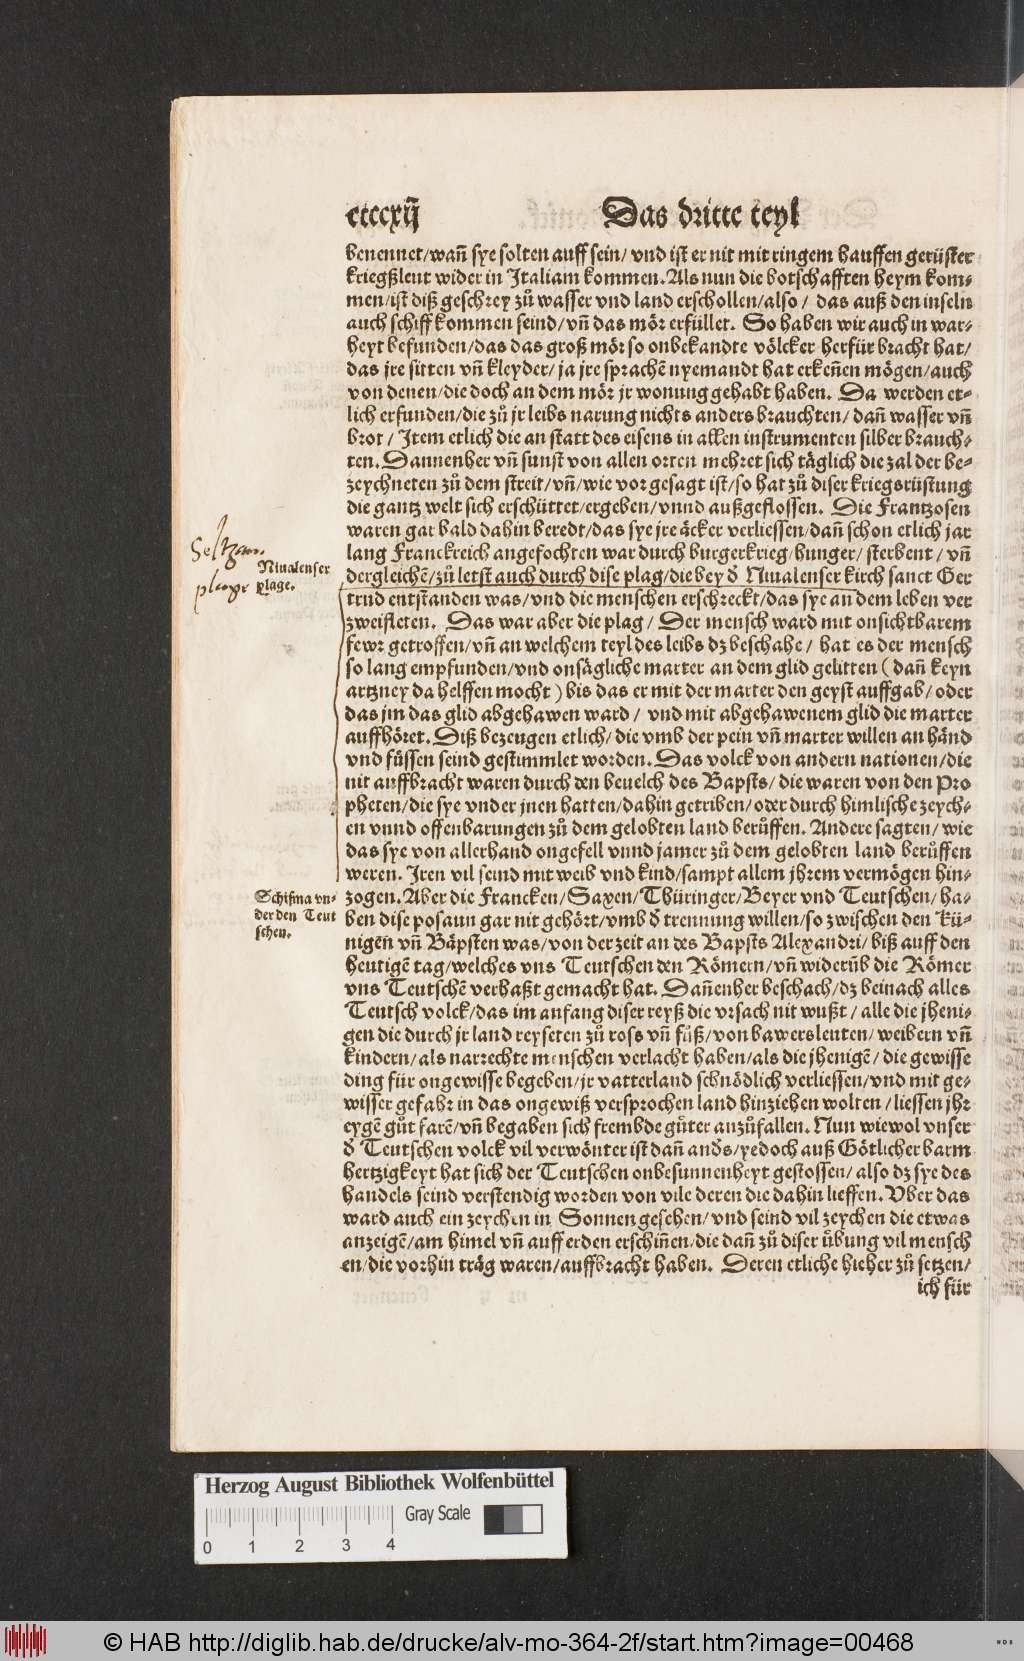 ccccxij Das dritte teyl
benennet/wañ sye solten auff sein/ vnd ist er nit mit ringem hauffen gerüster
kriegßleut wider in Italiam kommen. Als nun die botschafften heym kom⸗
men/ist diß geschrey zů wasser vnd land erschollen/also/ das auß den inseln
auch schiff kommen seind/vñ das mör erfüllet. So haben wir auch in war⸗
heyt befunden/das das groß mör so onbekandte völcker herfür bracht hat/
das jre sitten vñ kleyder/ja jre sprachẽ nyemandt hat erkeñen mögen/auch
von denen/die doch an dem mör jr wonung gehabt haben. Da werden et⸗
lich erfunden/die zů jr leibs narung nichts anders brauchten/ dañ wasser vñ
brot/ Item etlich die an statt des eisens in allen instrumenten silber brauch⸗
ten. Dannenher vñ sunst von allen orten mehret sich täglich die zal der be⸗
zeychneten zů dem streit/vñ/wie vor gesagt ist/so hat zů diser kriegsrüstung
die gantz welt sich erschüttet/ergeben/vnnd außgeflossen. Die Frantzosen
waren gar bald dahin beredt/das sye jre äcker verliessen/dañ schon etlich jar
lang Franckreich angefochten war durch burgerkrieg/hunger/ sterbent/ vñ
dergleichẽ/zů letst auch durch dise plag/die bey d̕ Niualenser kirch sanct Ger
trud entstanden was/vnd die menschen erschreckt/das sye an dem leben ver
zweifleten. Das war aber die plag/ Der mensch ward mit onsichtbarem
fewr getroffen/vñ an welchem teyl des leibs dz beschahe/ hat es der mensch
so lang empfunden/vnd onsägliche marter an dem glid gelitten (dañ keyn
artzney da helffen mocht) bis das er mit der marter den geyst auffgab/oder
das jm das glid abgehawen ward/ vnd mit abgehawenem glid die marter
auffhöret. Diß bezeugen etlich/die vmb der pein vñ marter willen an händ
vnd füssen seind gestimmlet worden. Das volck von andern nationen/die
nit auffbracht waren durch den beuelch des Bapsts/die waren von den Pro
pheten/die sye vnder jnen hatten/dahin getriben/oder durch himlische zeych⸗
en vnnd offenbarungen zů dem gelobten land berůffen. Andere sagten/wie
das sye von allerhand ongefell vnnd jamer zů dem gelobten land berůffen
weren. Iren vil seind mit weib vnd kind/sampt allem jhrem vermögen hin⸗
zogen. Aber die Francken/Saxen/Thüringer/Beyer vnd Teutschen/ha⸗
ben dise posaun gar nit gehört/vmb d̕ trennung willen/so zwischen den kü⸗
nigen vñ Bäpsten was/von der zeit an des Bapsts Alexandri/biß auff den
heutigẽ tag/welches vns Teutschen den Römern/vñ widerũb die Römer
vns Teutschẽ verhaßt gemacht hat. Dañenher beschach/dz beinach alles
Teutsch volck/das im anfang diser reyß die vrsach nit wußt/alle die jheni⸗
gen die durch jr land reyseten zů ross vñ fůß/von bawersleuten/weibern vñ
kindern/als narrechte menschen verlacht haben/als die jhenigẽ/die gewisse
ding für ongewisse begeben/jr vatterland schnödlich verliessen/vnd mit ge⸗
wisser gefahr in das ongewiß versprochen land hinziehen wolten/liessen jhr
eygẽ gůt farẽ/vñ begaben sich frembde gůter anzůfallen. Nun wiewol vnser
d̕ Teutschen volck vil verwönter ist dañ and̕s/yedoch auß Götlicher barm
hertzigkeyt hat sich der Teutschen onbesunnenheyt gestossen/also dz sye des
handels seind verstendig worden von vile deren die dahin lieffen. Vber das
ward auch ein zeychen in Sonnen gesehen/vnd seind vil zeychen die etwas
anzeigẽ/am himel vñ auff erden erschiñen/die dañ zů diser übung vil mensch
en/die vorhin träg waren/auffbracht haben. Deren etliche hieher zů setzen/
ich für
Seltzam
plage
Niualenser
plage.
Schißma vn⸗
der den Teut
schen.
Herzog August Bibliothek Wolfenbüttel
Gray Scale
0 1 2 3 4
© HAB http://diglib.hab.de/drucke/alv-mo-364-2f/start.htm?image=00468